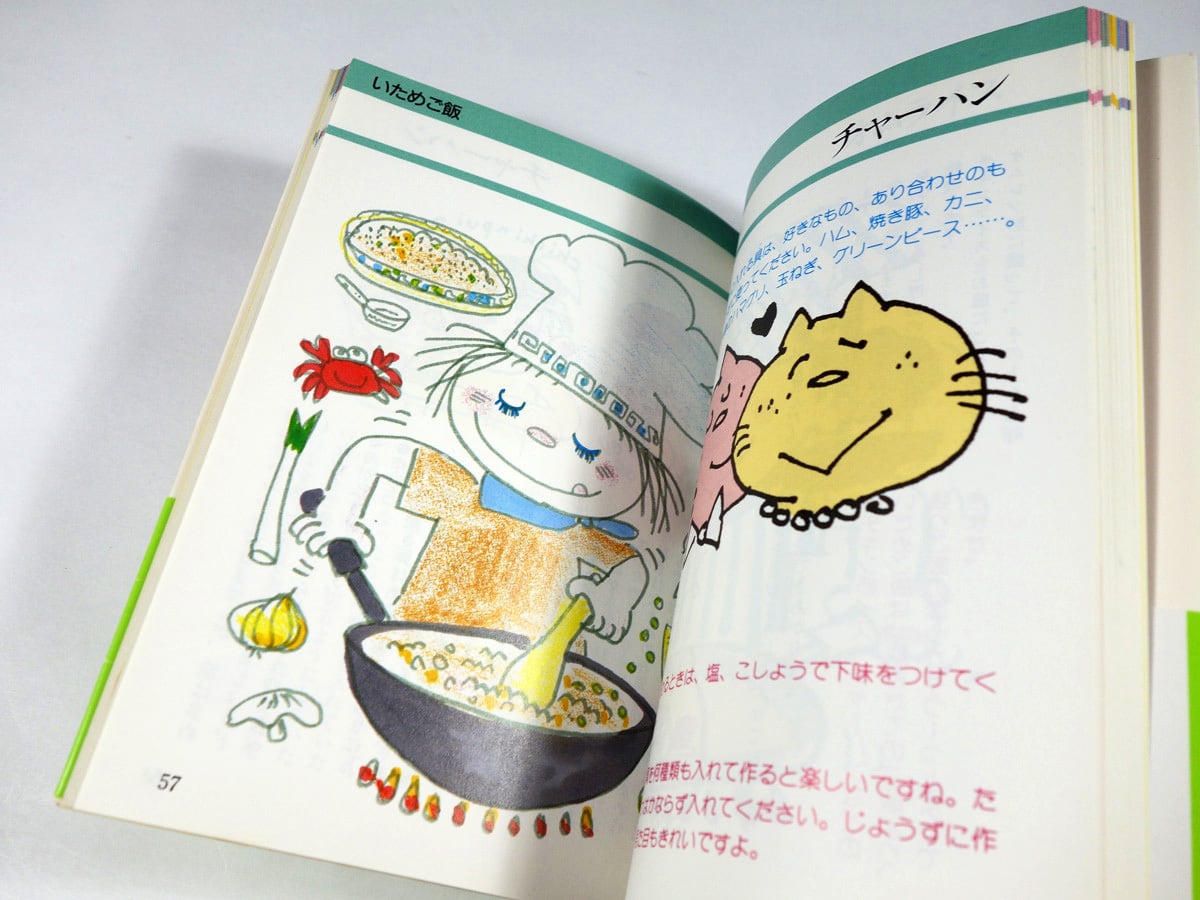 いためご飯
57
チャーハン
れる具は、好きなもの、あり合わせのも
使ってください。ハム、焼き豚、カニ、
ハマグリ、玉ねぎ、グリーンピース……。
るときは、塩、こしょうで下味をつけてく
何種類も入れて作ると楽しいですね。た
はかならず入れてください。じょうずに作
目もきれいですよ。